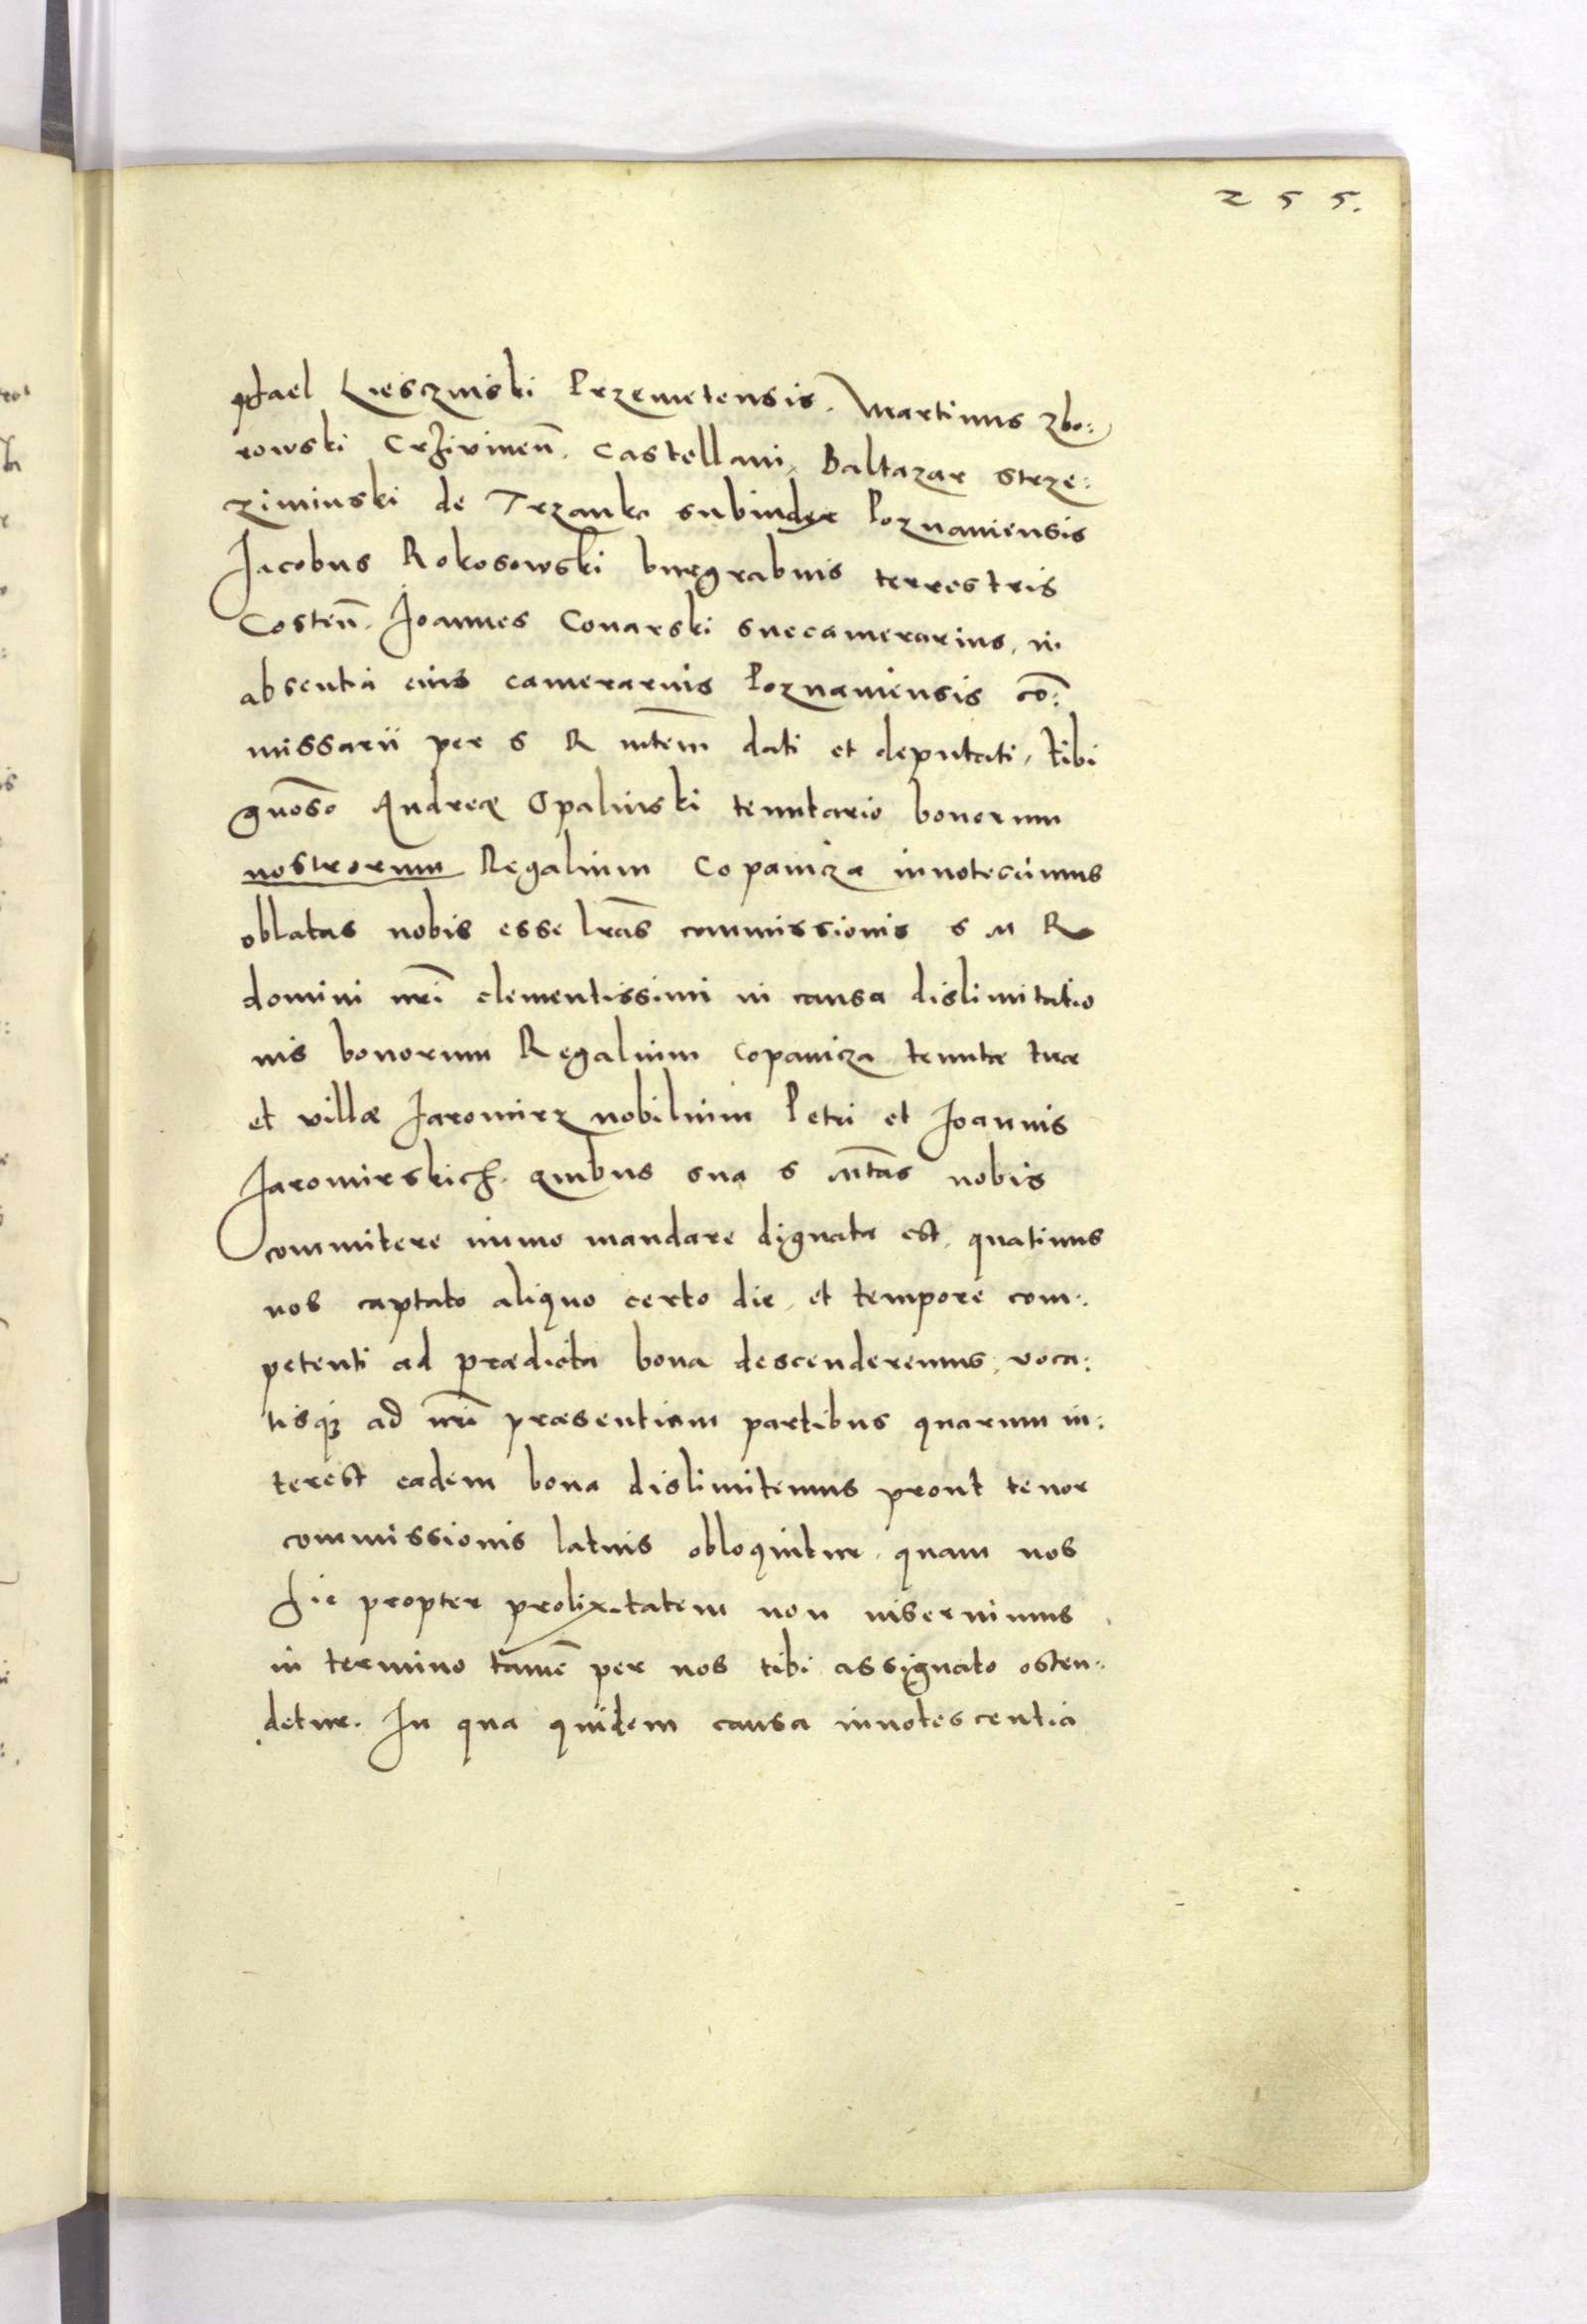 255.
phael Liesczinski Przemetensis. Martinus Zbo:
rowski Crzivinen̄. Castellani, Baltazar Strze:
ziminski de Trzanka subiudex Poznaniensis
Jacobus Rokosowski burgrabius terrestris
Costen̄. Joannes Conarski succamerarius, in
absentia eius camerarius Poznaniensis cō:
missarii per S R mtēm dati et deputati, tibi
gnōso Andreæ Opalinski tenutario bonorum
nostrorum Regalium Copanicza innotescimus
oblatas nobis esse lrās commissionis S M R
domini nrī clementissimi in causa dislimitatio
nis bonorum Regalium Copanicza tenutæ tuæ
et villæ Jaromirz nobilium Petri et Joannis
Jaromirskich. quibus sua S Mtās nobis
commitere immo mandare dignata est, quatinus
nos captato aliquo certo die, et tempore com:
petenti ad prædicta bona descenderemus, voca:
tisq3 ad nrī præsentiam partibus quarum in:
terest eadem bona dislimitemus prout tenor
commissionis latius obloquitur, quam nos
hic propter prolixitatem non inseruimus
in termino tamē per nos tibi assignato osten:
detur. In qua quidem causa innotescentia